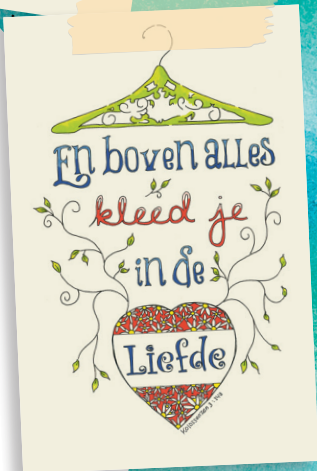 En boven alles
kleed je
in de
Liefde
Kolossenzen 3:14a